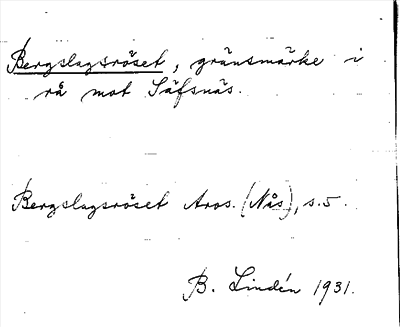 Bergslagsröset, gränsmärke i
rå mot Säfsnäs.
Bergslagsröset Aros. (Nås), s. 5.
B. Lindén 1931.